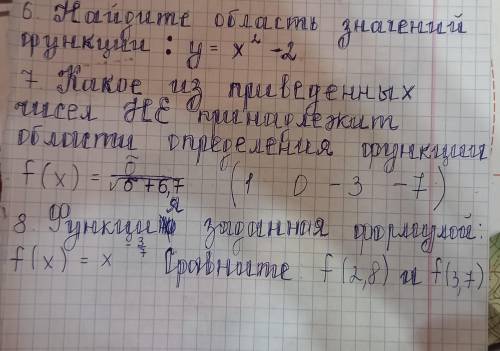 6 Найдите область значений
функции : y = x² - 2
7 Какое из приведенных
чисел НЕ принадлежит
области определения функции
f(x) = 6/√6 + 6,7 (1 0 - 3 - 7)
8 Функция заданная формулой:
f(x) = x^-3/7 Сравните f(2,8) и f(3,7)